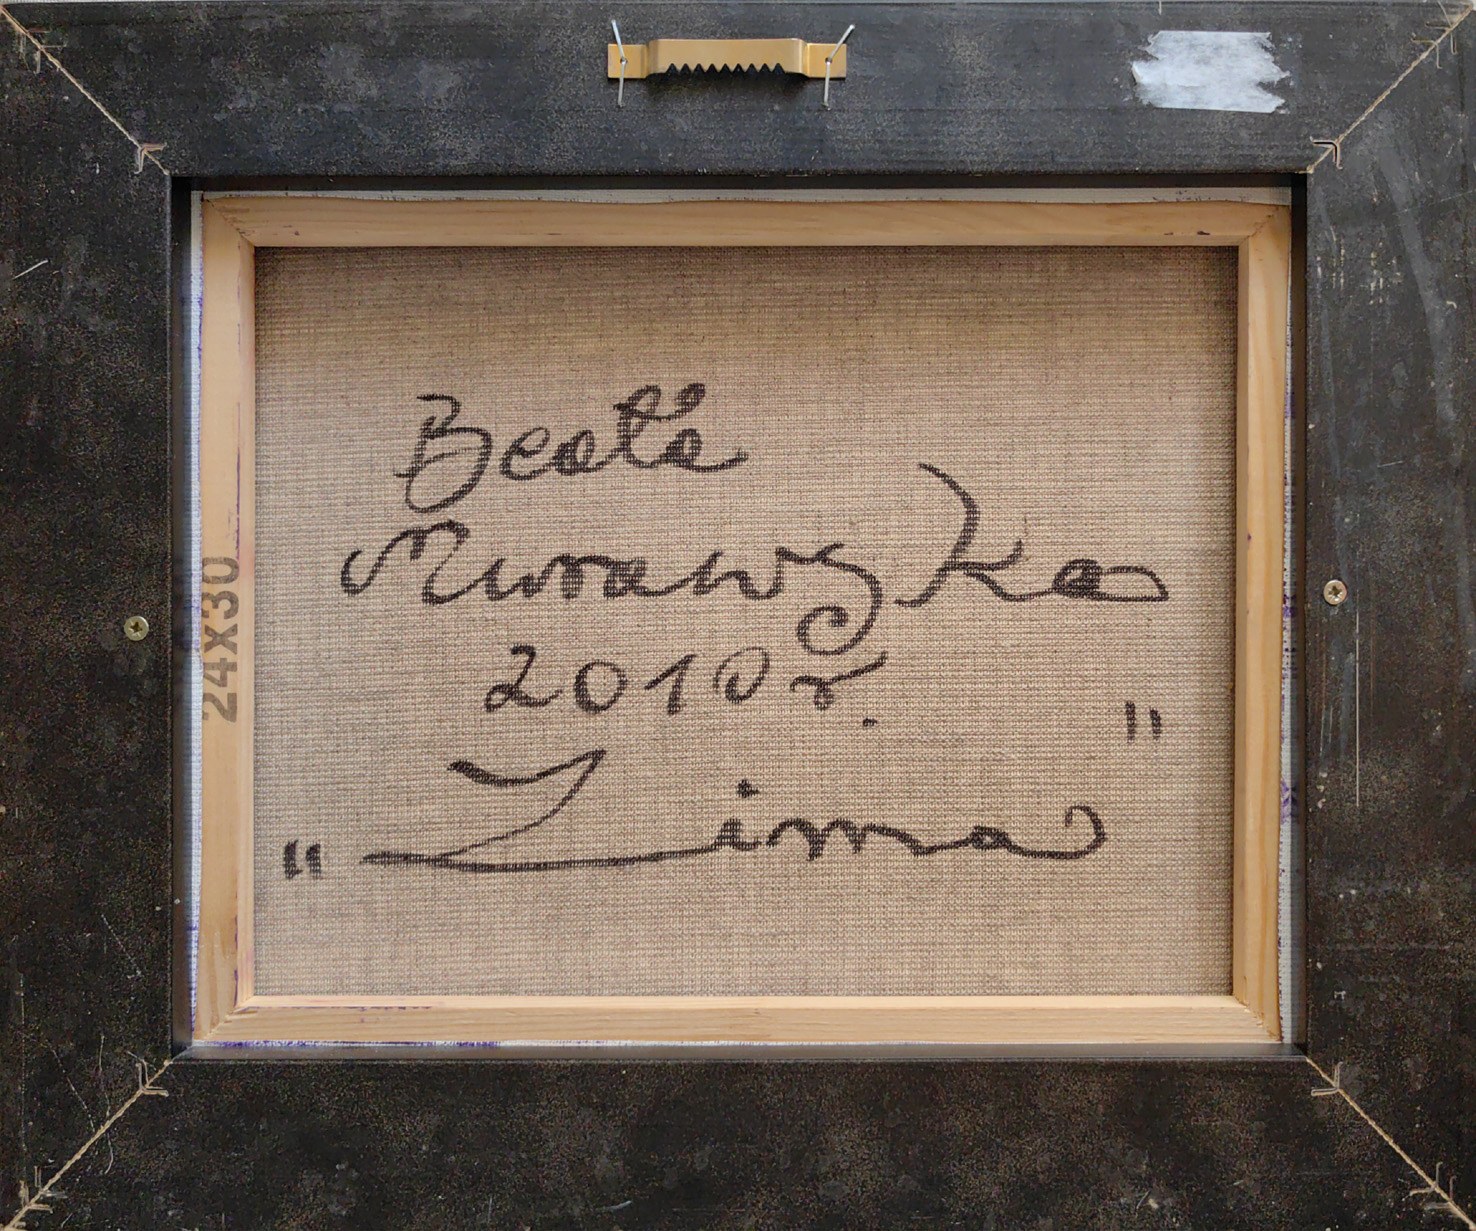 Beata
Murawska
2010 r.
„Zima"
24x30